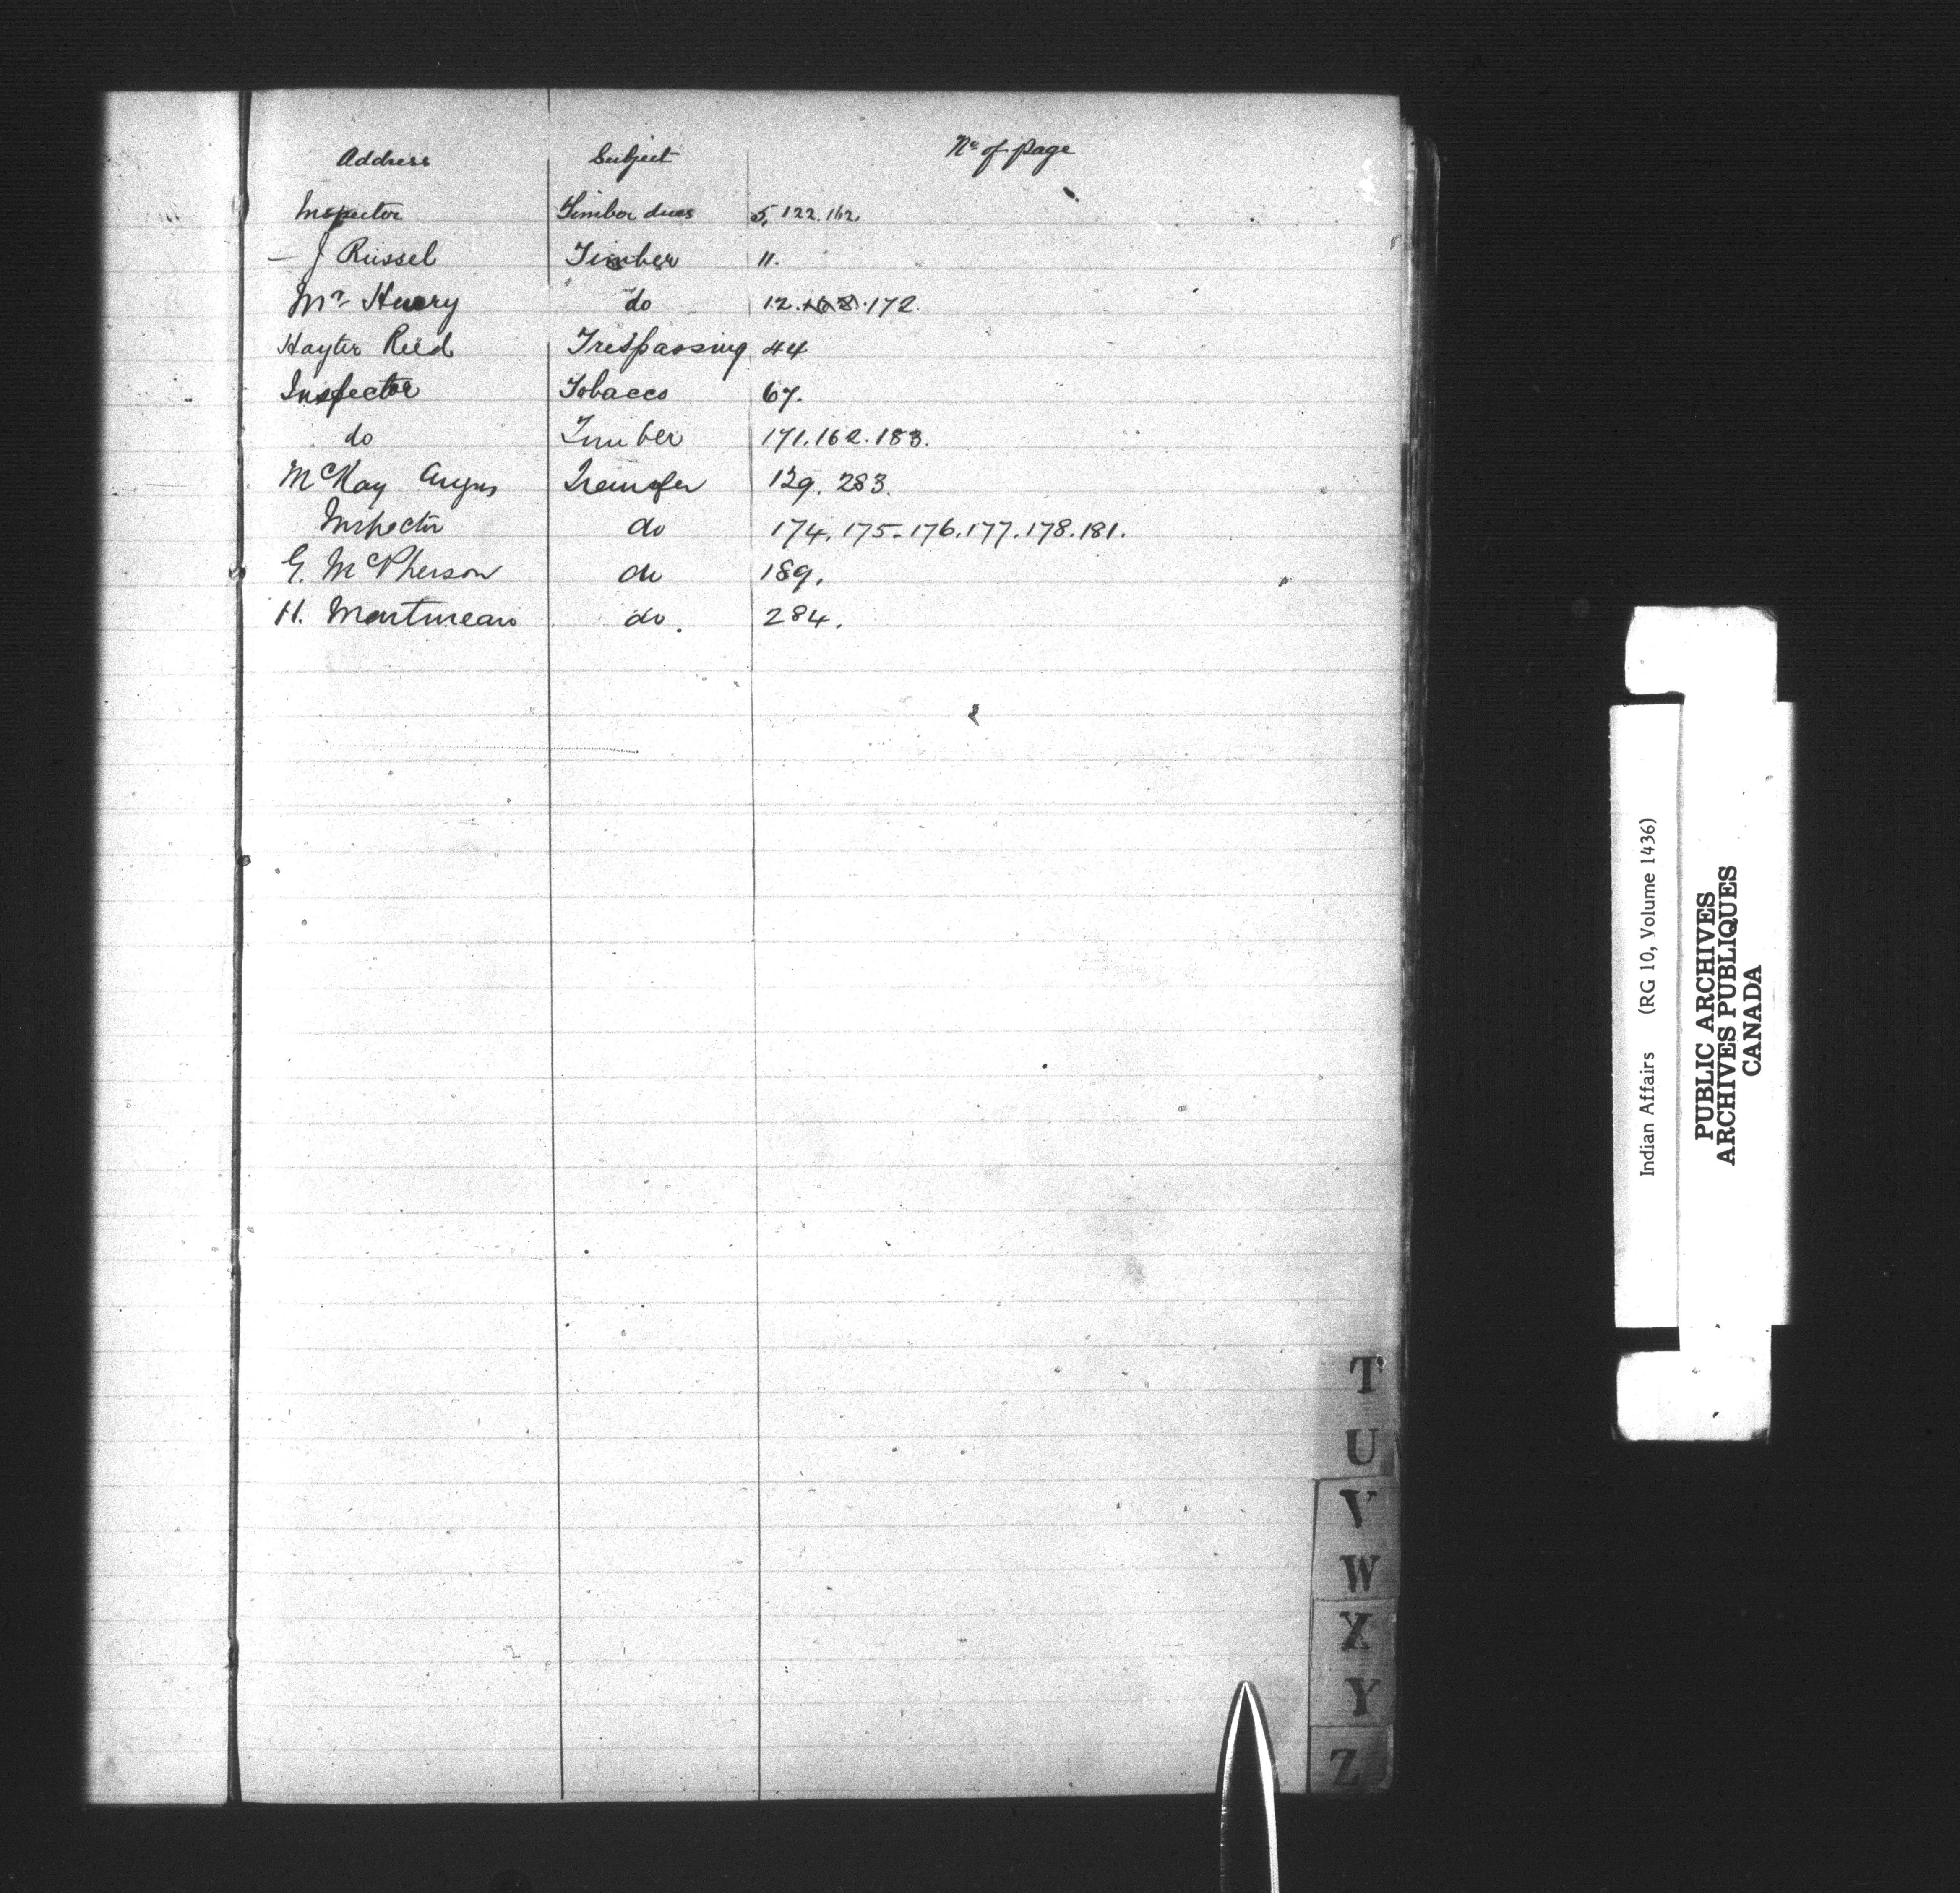 Address Subject No of page
Inspector Timber dues 5, 122. 162.
— J Russel Timber 11.
Mr Henry do 12. 162. 172.
Hayter Reed Trespassing 44
Inspector Tobacco 67.
do Timber 171. 162. 183.
McKay Angus Transfer 129. 283.
Inspector do 174. 175. 176. 177. 178. 181.
G. McPherson do 189.
H. Martineau do. 284.
T
U
V
W
X
Y
Z
Indian Affairs (RG 10, Volume 1436)
PUBLIC ARCHIVES
ARCHIVES PUBLIQUES
CANADA